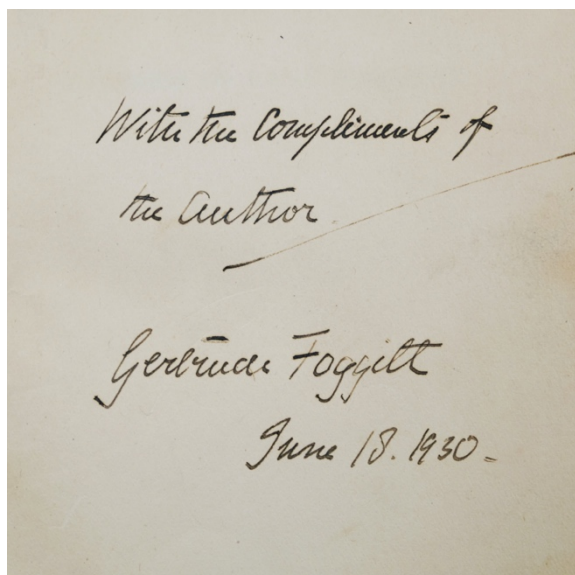 With the Compliments of
the Author
Gertrude Foggitt
June 18. 1930.